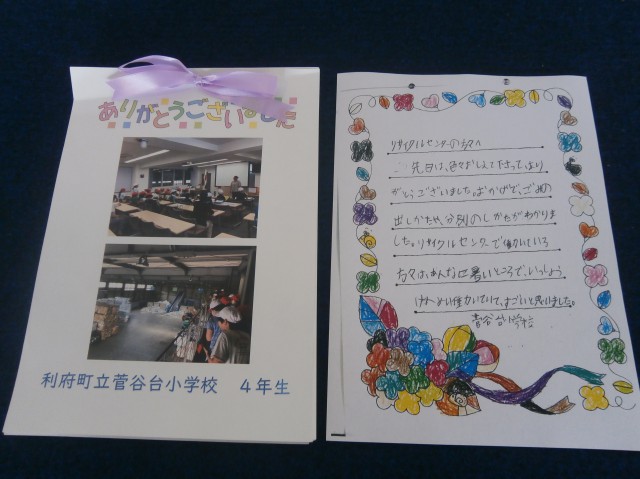 ありがとうございました
利府町立菅谷台小学校 4年生
リサイクルセンターの方々へ
先日は、色々おしえて下さって、あり
がとうございました。おかげで、ごみの
出しかたや、分別のしかたがわかりま
した。リサイクルセンターで働いている
方々は、あんなに暑いところで、いっしょう
けんめい働いていて、すごいと思いました。
菅谷台小学校